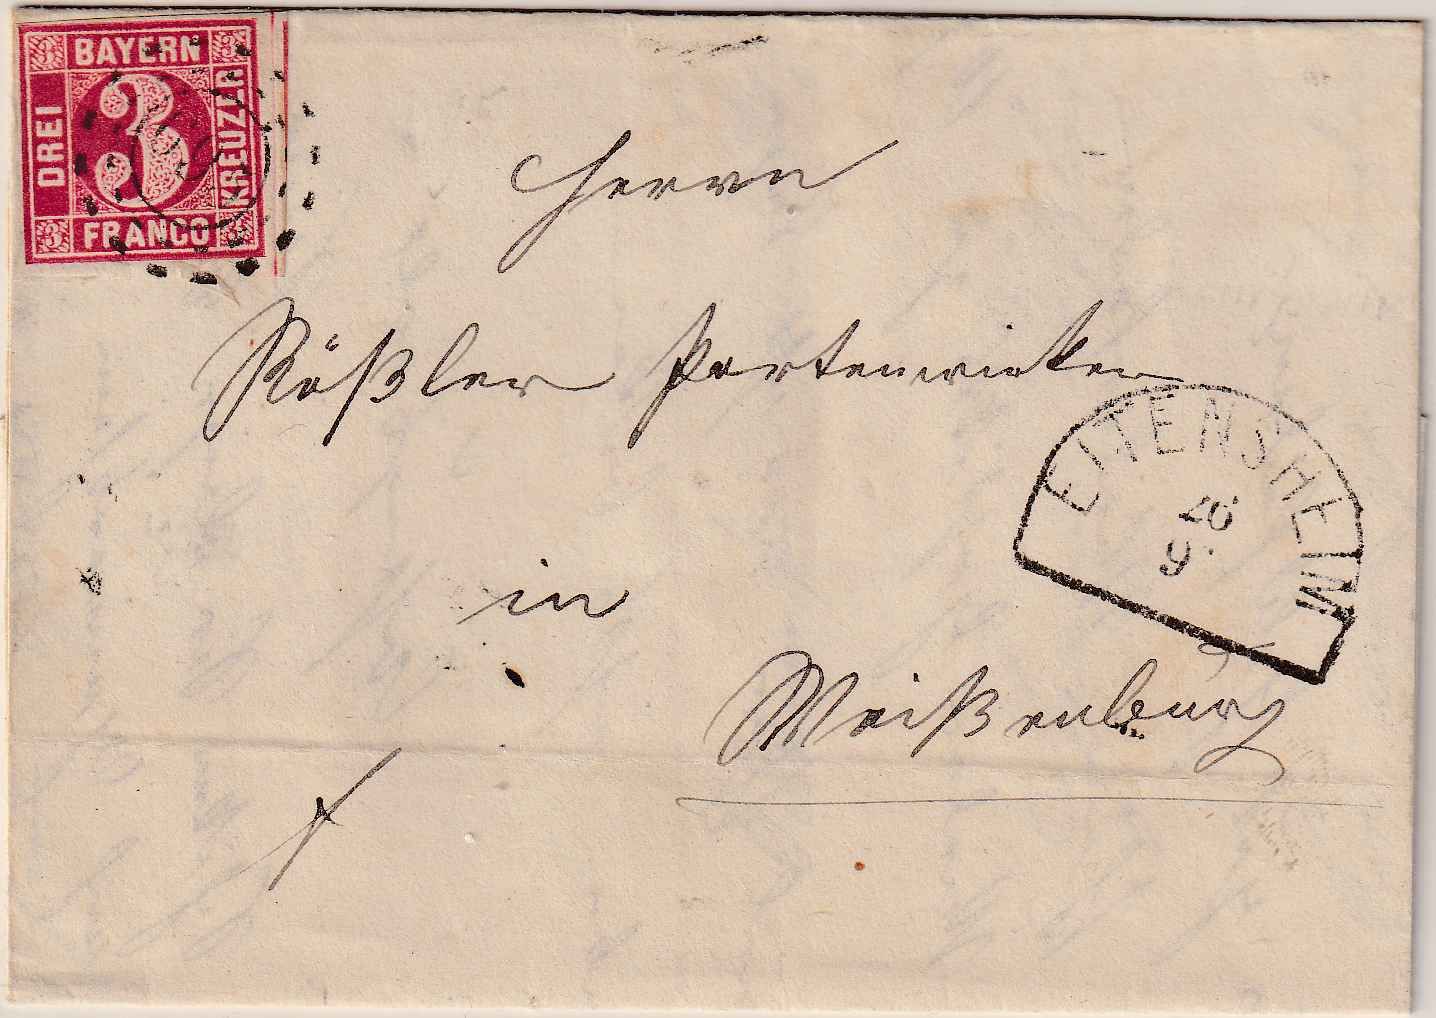 3 BAYERN 3
DREI 3 KREUZER
3 FRANCO 3
Herrn
Rößler
EITENSHEIM
26
9
in
Weißenburg